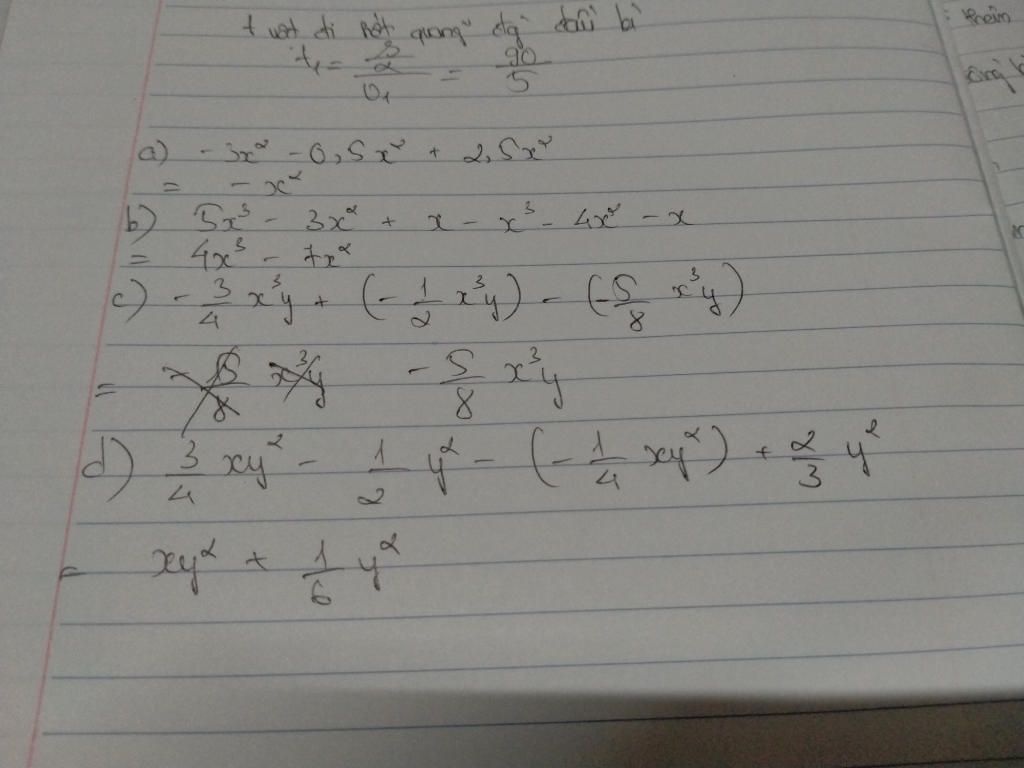 t vật đi nửa quãng đg đầu là
t₁ = (S/2)/v₁ = 90/5
a) - 3x² - 0,5x² + 2,5x²
= - x²
b) 5x³ - 3x² + x - x³ - 4x² - x
= 4x³ - 7x²
c) - 3/4 x³y + (- 1/2 x³y) - (- 5/8 x³y)
= - 5/8 x³y
d) 3/4 xy² - 1/2 y² - (- 1/4 xy²) + 2/3 y²
= xy² + 1/6 y²